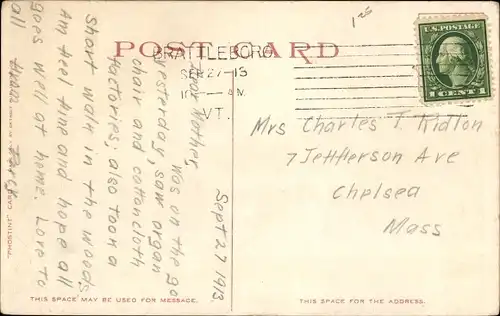 1 25
POST CARD
BRATTLEBORO
SEP 27-13
VT.
U.S. POSTAGE
1 CENT 1
Sept 27 1913
Dear Mother,
was on the go
yesterday, saw organ
chair and cotton cloth
factories, also took a
short walk in the woods
Am feel fine and hope all
goes well at home. Love to
all
Percy
Mrs Charles T. Ridlon
7 Jefferson Ave
Chelsea
Mass
"PHOSTINT" CARD
THIS SPACE MAY BE USED FOR MESSAGE.
THIS SPACE IS FOR THE ADDRESS.